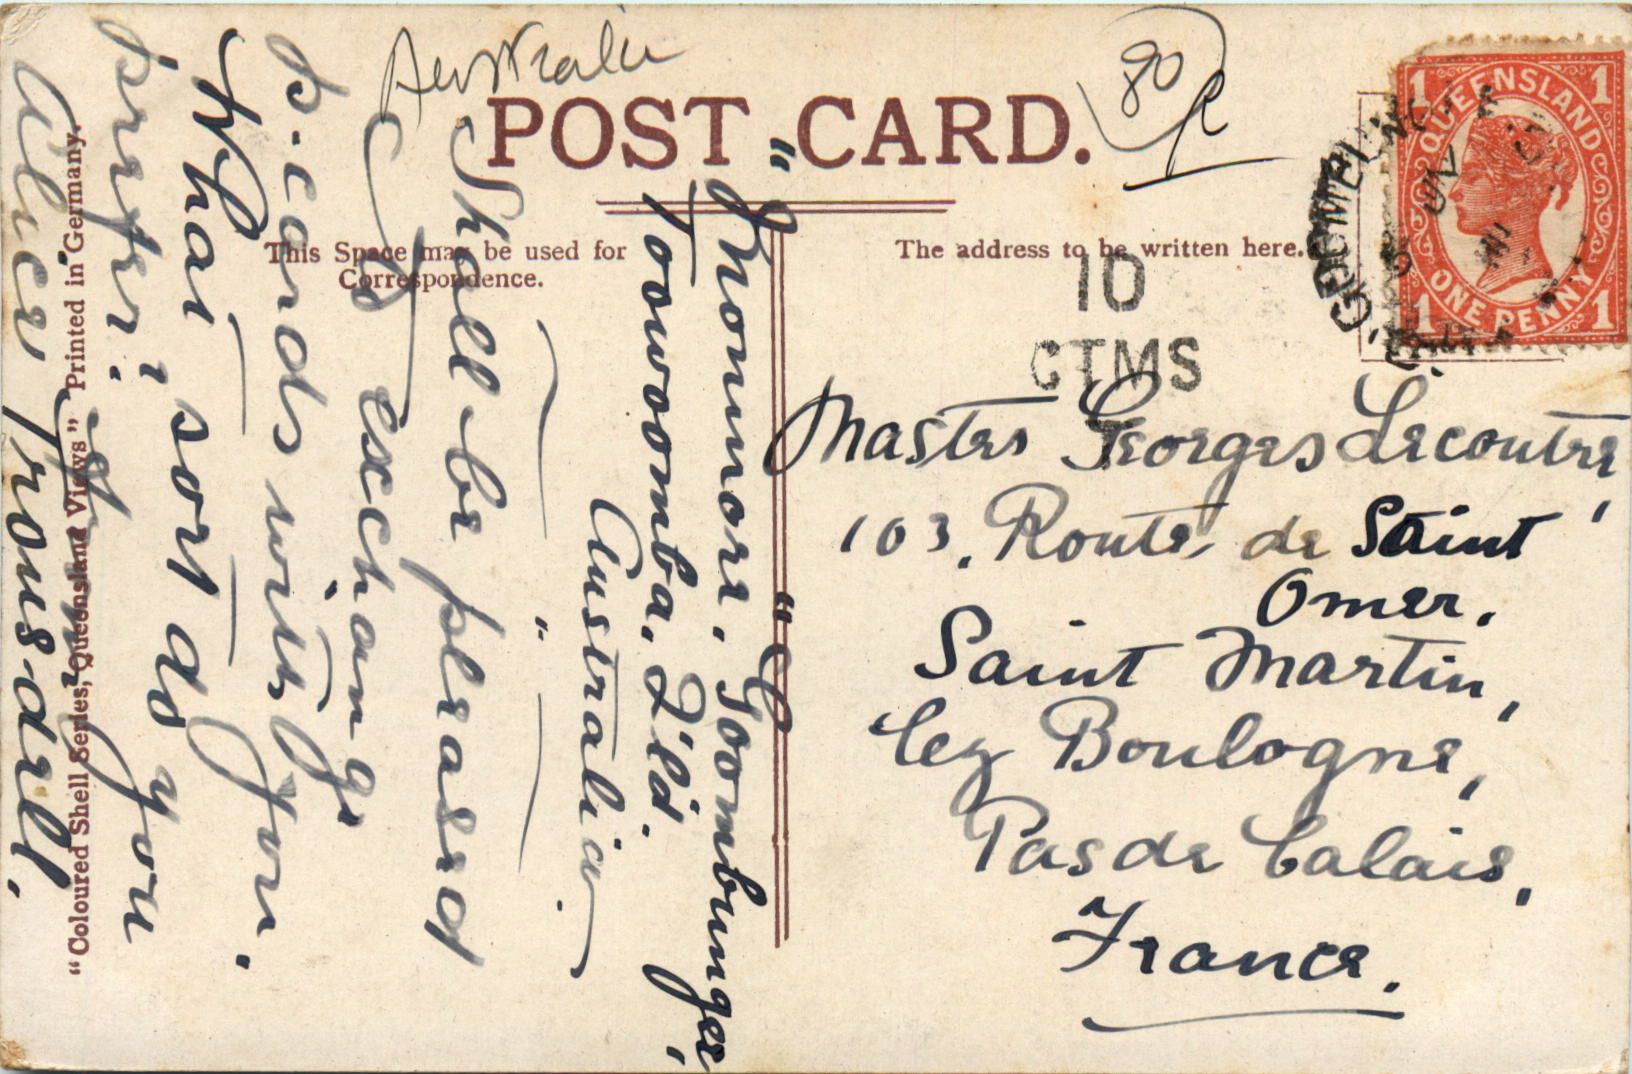 Australia
80
POST CARD.
This Space may be used for
Correspondence.
The address to be written here.
QUEENSLAND
ONE PENNY
1 1
1 1
10
CTMS
"Monmore," Goombungee,
Toowoomba, Q'ld.
Australia.
Shall be pleased
to exchange
p.cards with you.
What sort do you
prefer?
Alice Trousdell.
"Coloured Shell Series, Queensland Views" Printed in Germany.
Master Georges Lecoutre,
103, Route de Saint
Omer.
Saint Martin,
lez Boulogne,
Pas de Calais,
France.